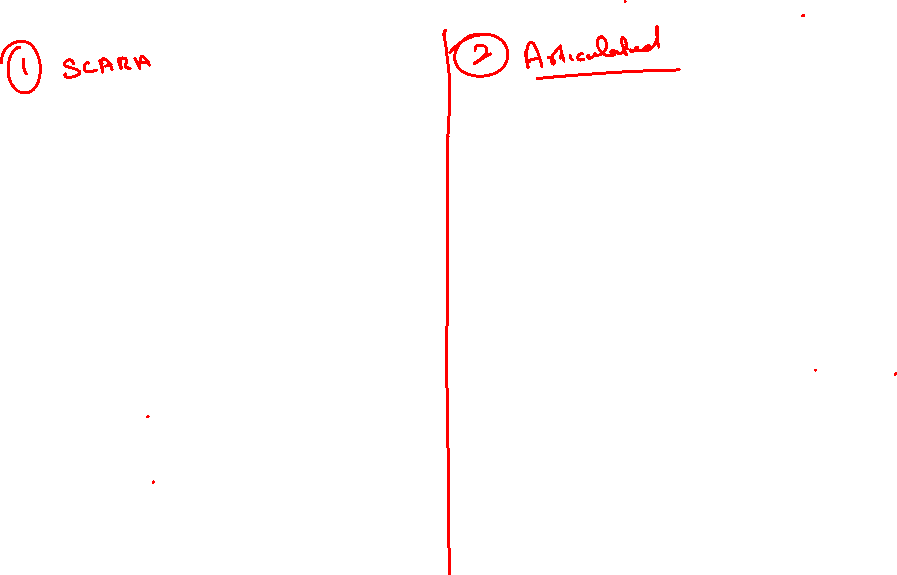 1 SCARA
2 Articulated